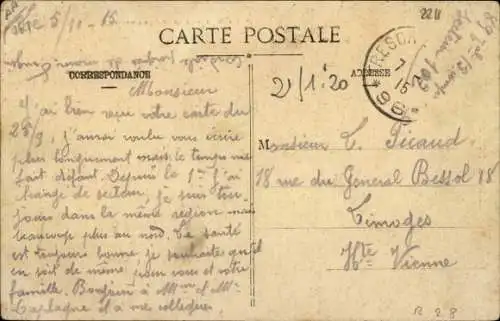 5/11-15
2211
CARTE POSTALE
CORRESPONDANCE
ADRESSE
21/1.20
TRESOR
7
15
*98*
Monsieur
J'ai bien reçu votre carte du
25/9, j'aurai voulu vous écrire
plus longuement mais le temps me
fait défaut. Depuis le 1er j'ai
changé de secteur, je suis tou-
jours dans la même région mais
beaucoup plus au nord. La santé
est toujours bonne, je souhaite qu'il
en soit de même pour vous et votre
famille. Bonjour à Mme et Mr
Laplagne et à mes collègues.
Monsieur C. Picaud
18 rue du General Bessol 18
Limoges
Hte Vienne
R 28